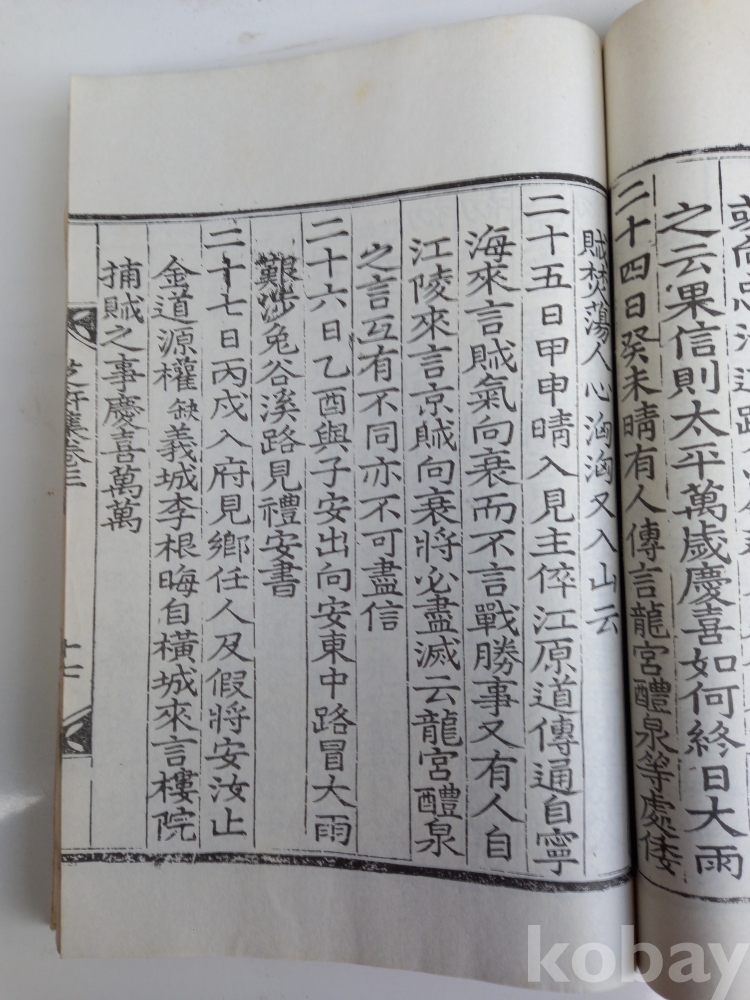 之云果信則太平萬歲慶喜如何終日大雨
二十四日癸未晴有人傳言龍宮醴泉等處倭
賊焚蕩人心洶洶又入山云
二十五日甲申晴入見主倅江原道傳通自寧
海來言賊氣向衰而不言戰勝事又有人自
江陵來言京賊向衰將必盡滅云龍宮醴泉
之言互有不同亦不可盡信
二十六日乙酉與子安出向安東中路冒大雨
艱涉兔谷溪路見禮安書
二十七日丙戌入府見鄉任人及假將安汝止
金道源權缺義城李根晦自橫城來言樓院
捕賊之事慶喜萬萬
集卷三
十七
kobay